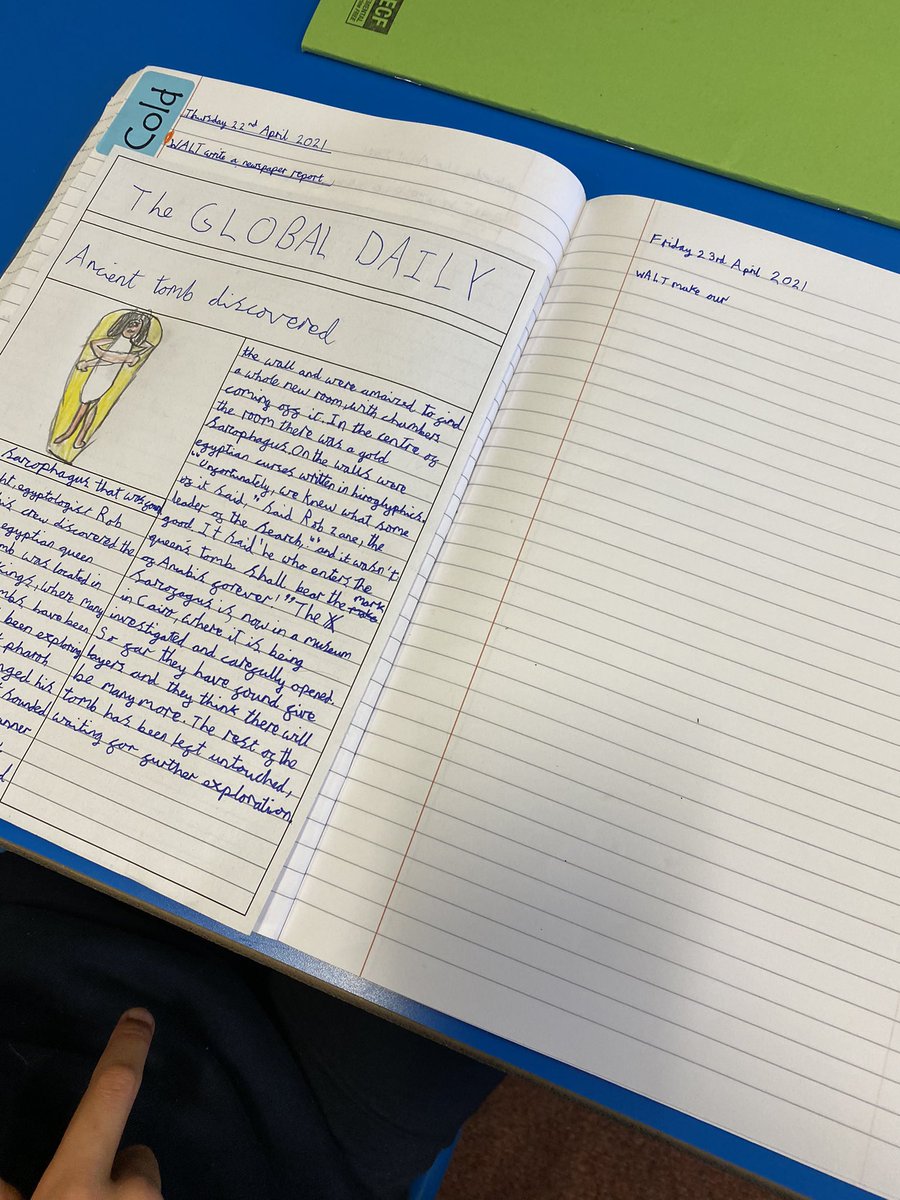 ECF
Cold
Thursday 22nd April 2021
WALT write a newspaper report
The GLOBAL DAILY
Ancient tomb discovered
Sarcophagus that was found
ht, egyptologist Rob
his crew discovered the
egyptian queen
mb was located in
Kings, where many
mbs have been
been exploring
pharoh
nged his
t sounded
anner
the wall and were amaized to find
a whole new room, with chambers
coming off it. In the centre of
the room there was a gold
sarcophagus. On the walls were
egyptian curses written in hiroglyphics.
"Unfortunately, we knew what some
of it said," said Rob Zane, the
leader of the search, "and it wasn't
good. It said 'he who enters the
queen's tomb shall bear the mark
of Anubis forever!'" The
Sarcofagus is, now in a museum
in Cairo, where it is being
investigated and carefully opened.
So far they have found five
layers and they think there will
be many more. The rest of the
tomb has been left untouched,
waiting for further exploration.
Friday 23rd April 2021
WALT make our